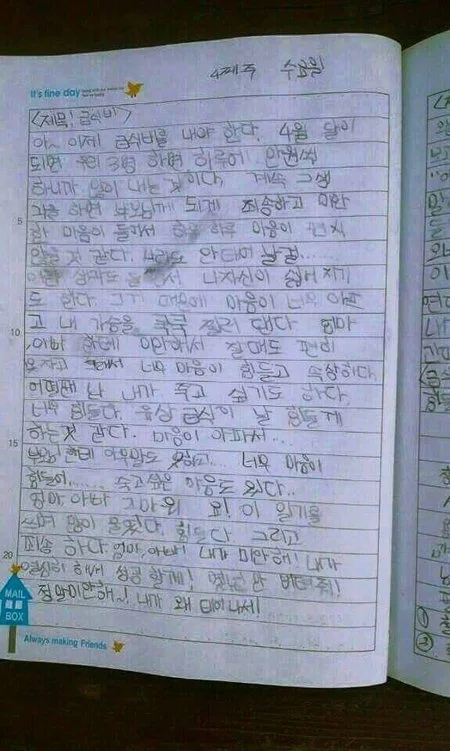 4째주 수요일
It's fine day
<제목: 급식비>
아~ 이제 급식비를 내야 한다. 4월 달이
되면 우리 3명 하면 하루에 만원씩
하니까 많이 내는 것이다. 계속 그 생
각을 하면 부모님께 되게 죄송하고 미안
한 마음이 들어서 하루 하루 마음이 편치
않을 것 같다. 차라도 안 태어 날걸......
이런 생각도 들면서 나 자신이 싫어 지기
도 한다. 그 때문에 마음이 너무 아프
고 내 가슴을 콕콕 찔러 댄다. 엄마
아빠 한테 미안해서 잘때도 편히
못자고 그래서 너무 마음이 힘들고 속상하다.
어떨땐 난 내가 죽고 싶기도 하다.
너무 힘들다. 유상 급식이 날 힘들게
하는것 같다. 마음이 아파서...
한테 아무말도 못하고... 너무 마음이
힘들어...... 죽고 싶은 마음도 있다..
엄마, 아빠 이 일기를
쓰며 많이 울었다. 힘들다 그리고
죄송 하다. 엄마, 아빠! 내가 미안해! 내가
열심히 해서 성공 할게! 몇년만 버텨줘!
정말 미안해~! 내가 왜 태어나서!
MAIL
BOX
Always making Friends
5
10
15
20